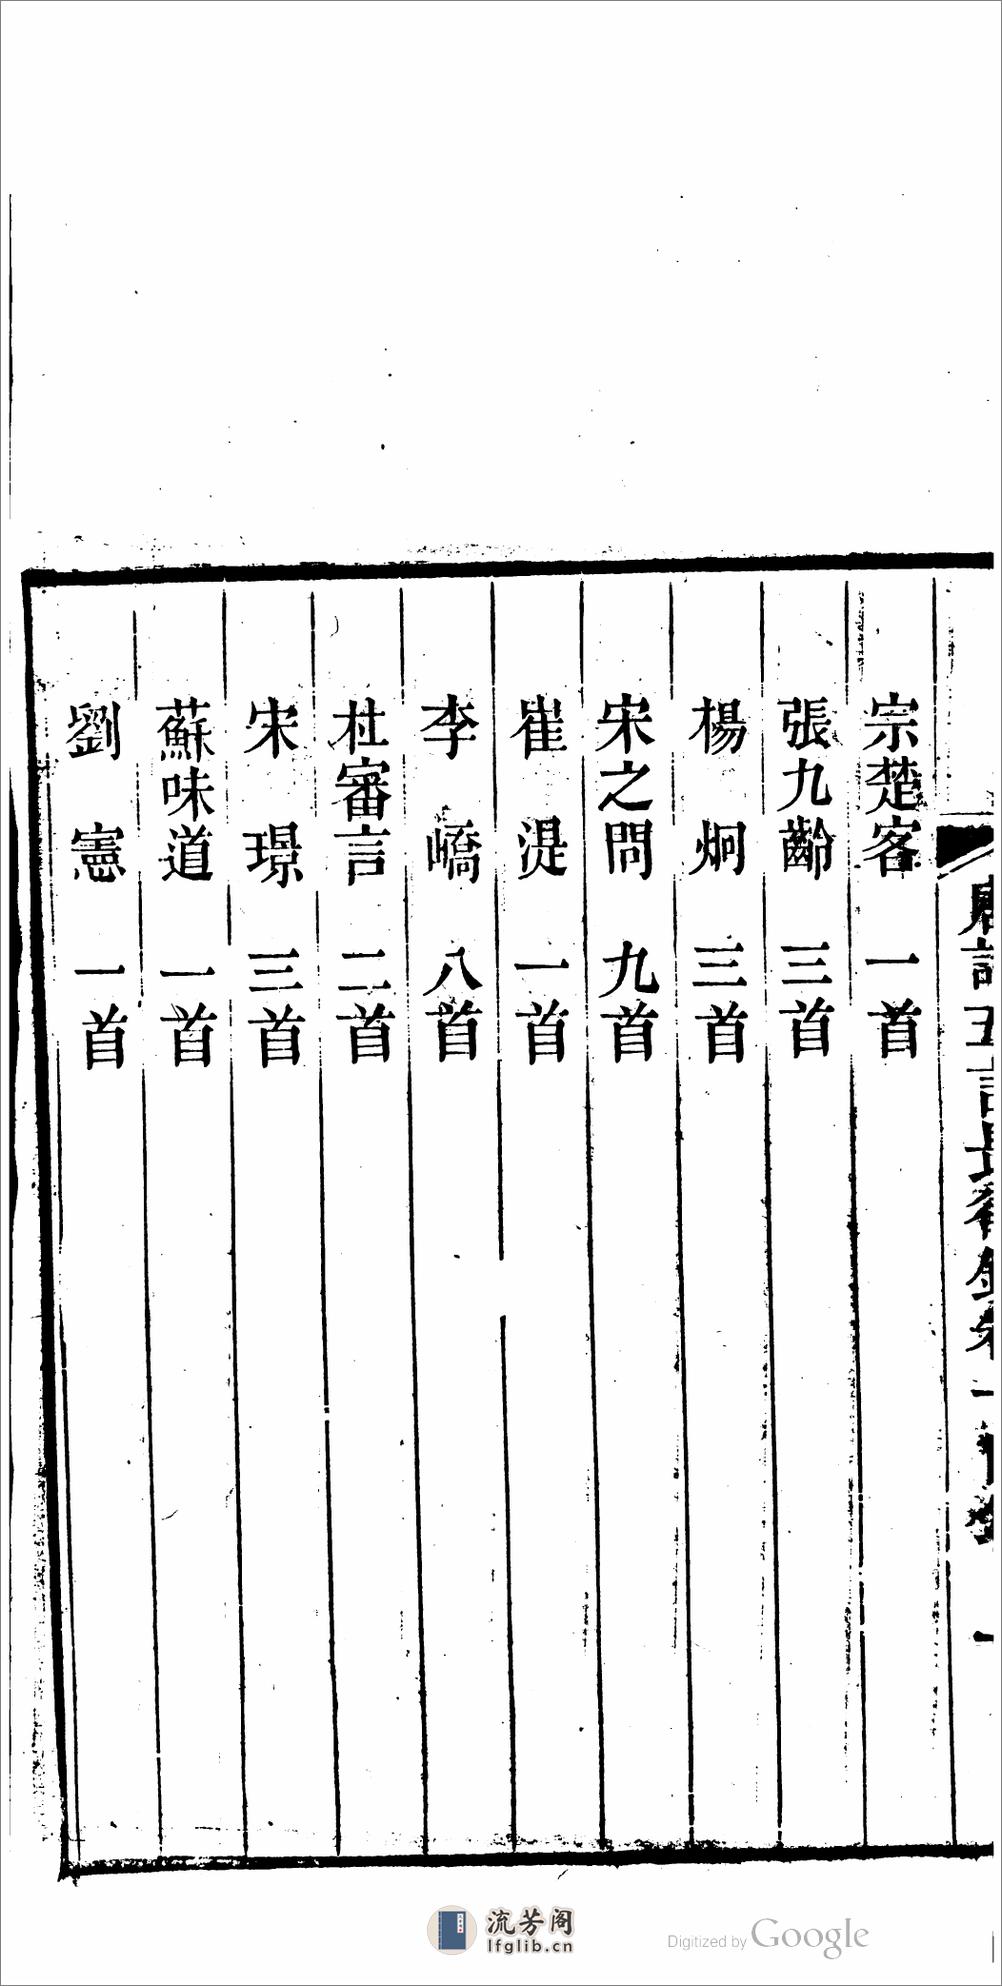 宗楚客　一首
張九齡　三首
楊　炯　三首
宋之問　九首
崔　湜　一首
李　嶠　八首
杜審言　二首
宋　璟　三首
蘇味道　一首
劉　憲　一首
流芳阁
lfglib.cn
Digitized by Google